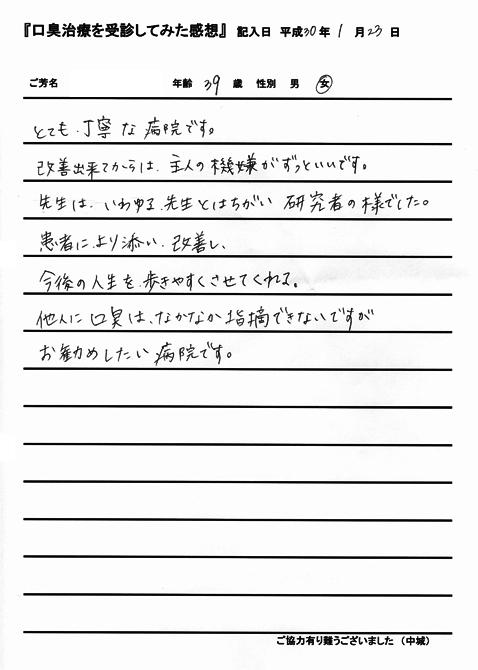 『口臭治療を受診してみた感想』 記入日 平成30年 1 月 23 日
ご芳名 年齢 39 歳 性別 男 女
とても、丁寧な病院です。
改善出来てからは、主人の機嫌がずっといいです。
先生は、いわゆる、先生とはちがい研究者の様でした。
患者により添い、改善し、
今後の人生を、歩きやすくさせてくれる。
他人に口臭は、なかなか指摘できないですが
お勧めしたい病院です。
ご協力有り難うございました （中城）